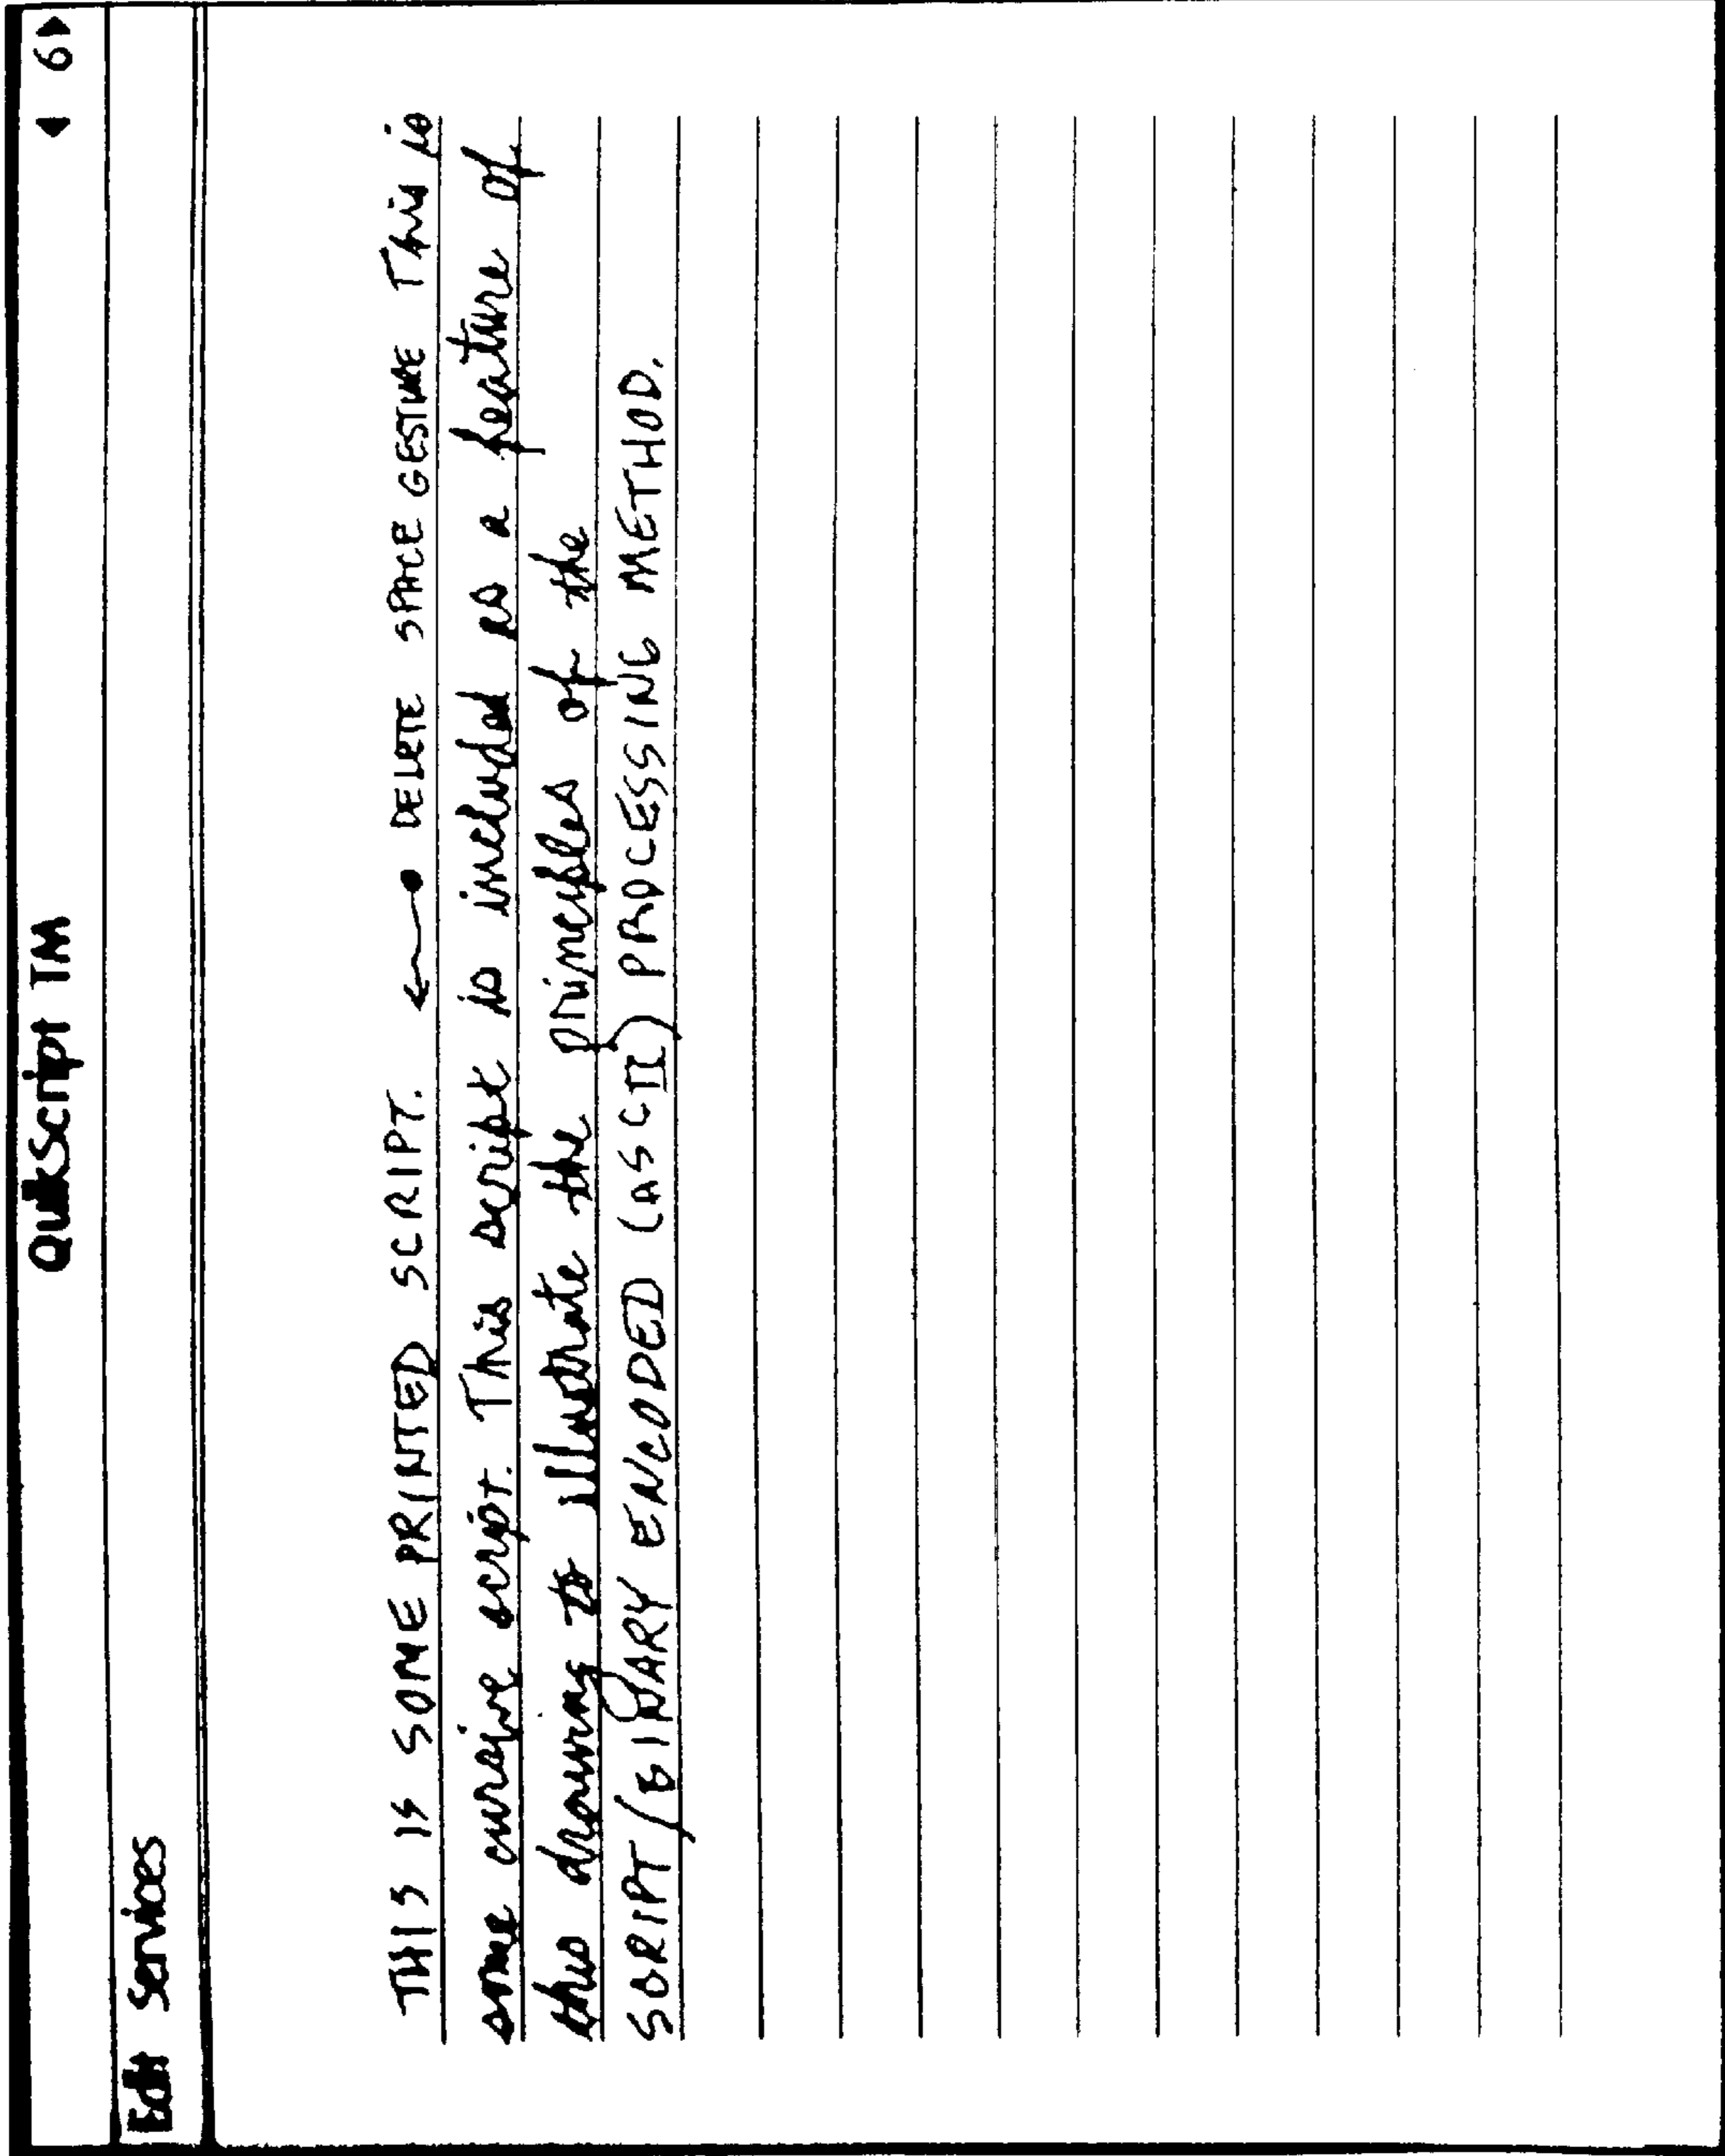 QuikScript TM ◀ 6 ▶
Edit Services
THIS IS SOME PRINTED SCRIPT. ← DELETE SPACE GESTURE This is
some cursive script. This script is included as a feature of
this drawing to illustrate the principles of the
SCRIPT (BINARY ENCODED (ASCII) PROCESSING METHOD.